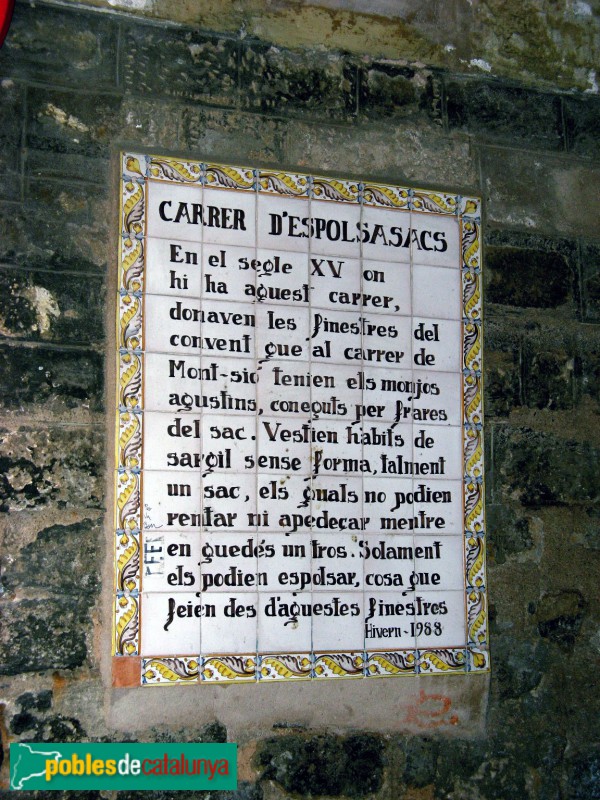 CARRER D'ESPOLSASACS
En el segle XV on
hi ha aquest carrer,
donaven les finestres del
convent que al carrer de
Mont-sió tenien els monjos
agustins, coneguts per frares
del sac. Vestien hàbits de
sargil sense forma, talment
un sac, els quals no podien
rentar ni apedeçar mentre
en quedés un tros. Solament
els podien espolsar, cosa que
feien des d'aquestes finestres
Hivern-1988
poblesdecatalunya